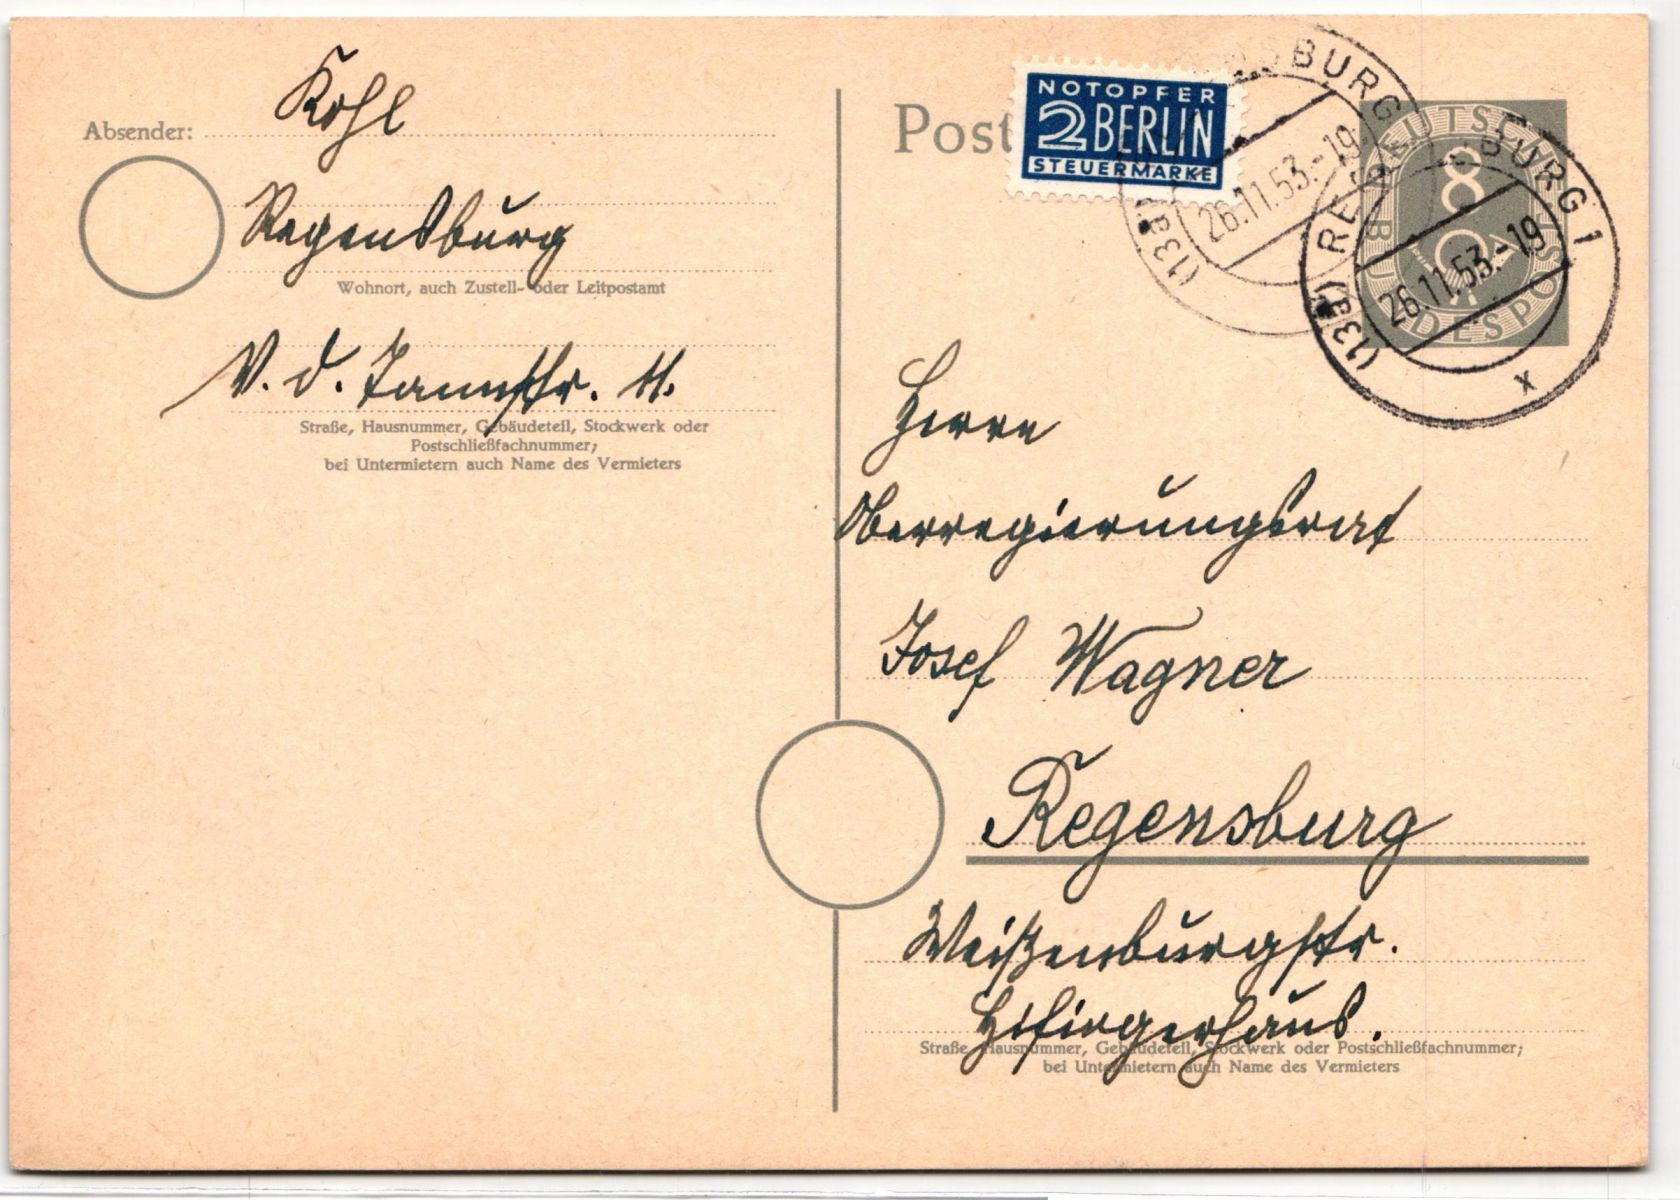 Absender: Kohl
Regensburg
Wohnort, auch Zustell- oder Leitpostamt
V. d. Tannstr.
Straße, Hausnummer, Gebäudeteil, Stockwerk oder
Postschließfachnummer;
bei Untermietern auch Name des Vermieters
Post
NOTOPFER
2 BERLIN
STEUERMARKE
BURG
(13a)
26.11.53.-19
DEUTSCHE BUNDESPOST
8
(13a) REGENSBURG 1
26.11.53.-19
x
Herrn
Oberregierungsrat
Josef Wagner
Regensburg
Weißenburgstr.
Straße, Hausnummer, Gebäudeteil, Stockwerk oder Postschließfachnummer;
bei Untermietern auch Name des Vermieters